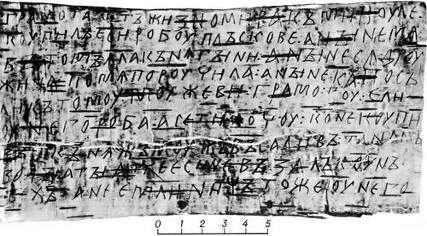 грамота : ѡтъ жизномира : къ микоуле :
коупилъ еси : робоу : плъскове : а ныне мѧ :
въ томъ : ѧла кънѧгыни : а ныне сѧ дроу
жина : по мѧ пороучила : а ныне ка : посъ
ли къ томоу : моужеви : грамотоу : е ли
оу него роба : а се ти хочоу : коне коупивъ :
и кънѧжъ моужъ въсадивъ : та на съ
воды : а ты атче еси не възалъ коунъ :
техъ : а не емли : ничъто же оу него :
0 1 2 3 4 5